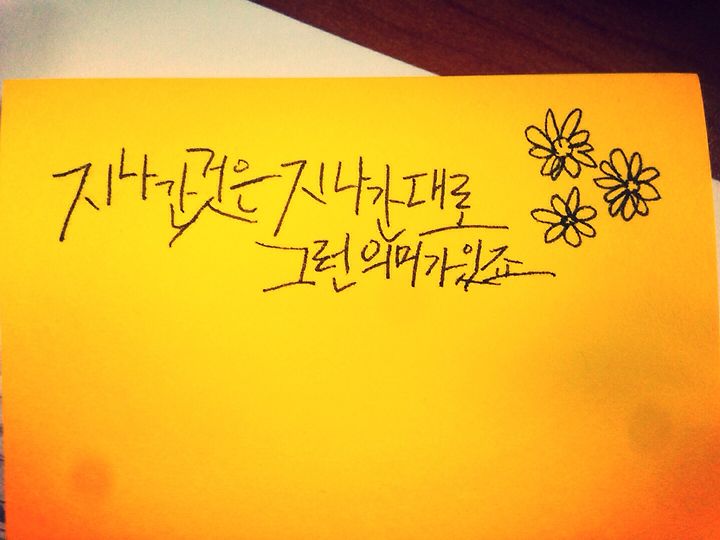 지나간 것은 지나간 대로
그런 의미가 있죠